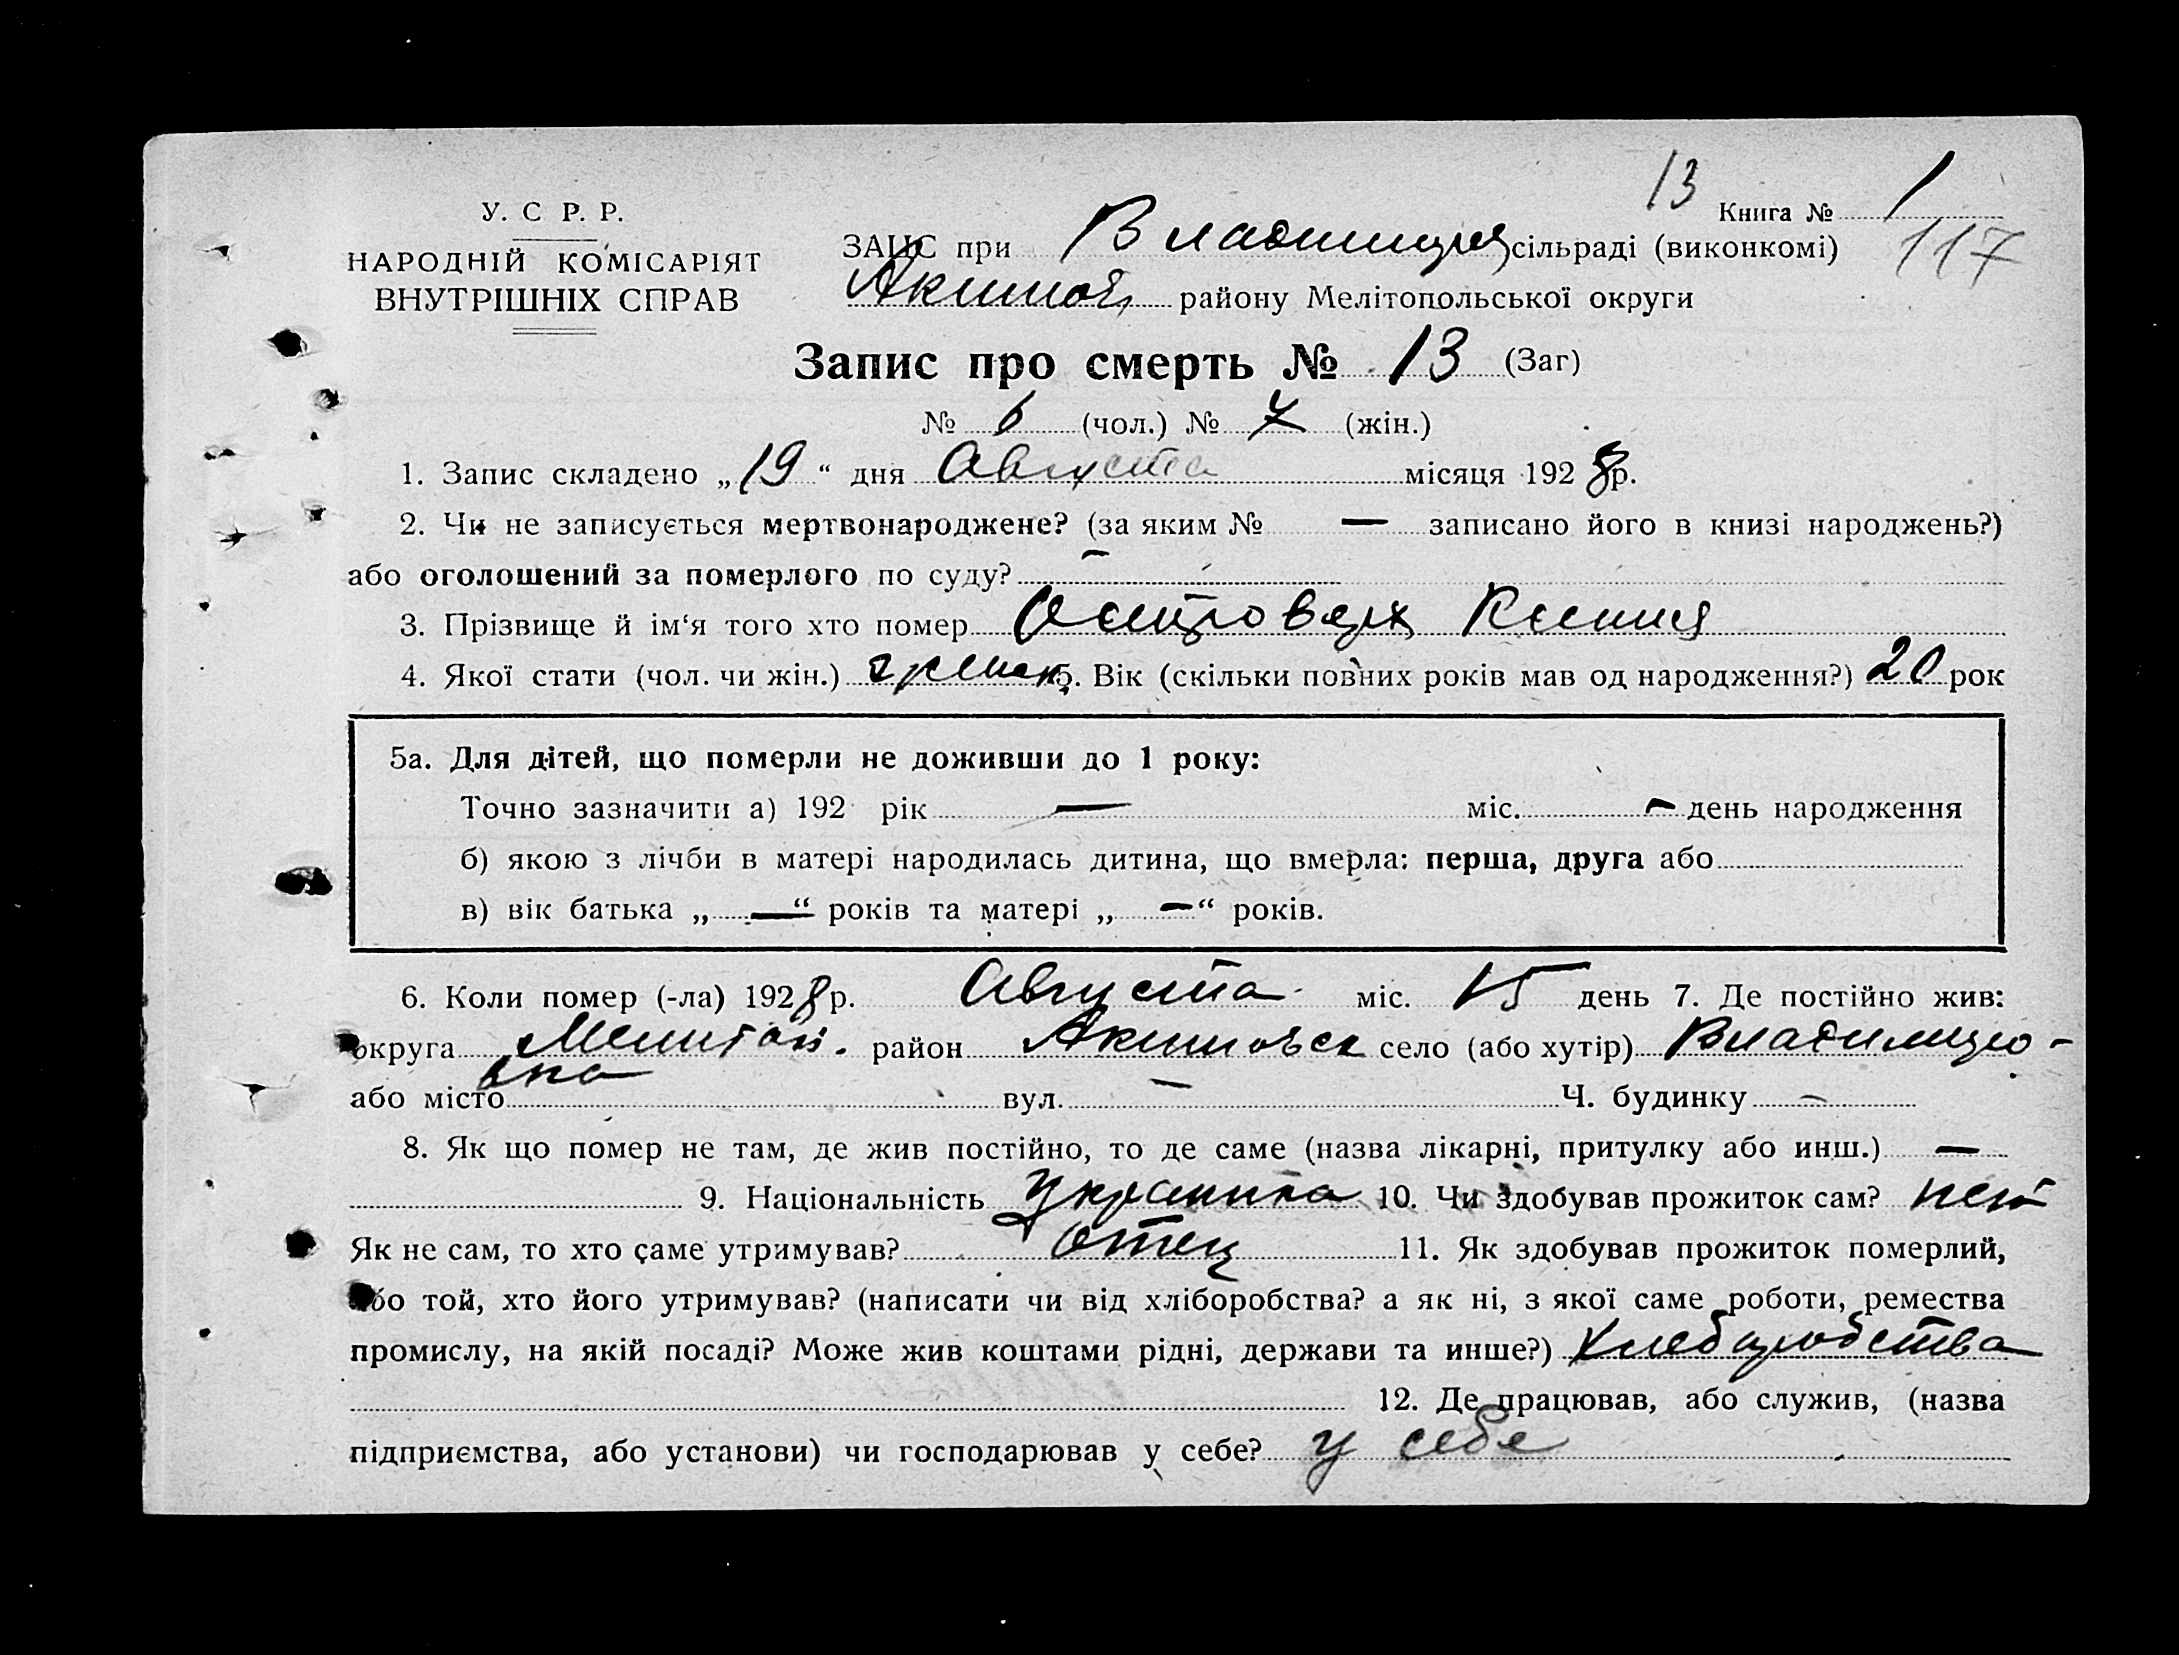 13 Книга № 1
У. С Р. Р.
ЗАЦС при Владимирсільраді (виконкомі) 117
НАРОДНІЙ КОМІСАРІЯТ
ВНУТРІШНІХ СПРАВ
Акимов району Мелітопольської округи
Запис про смерть № 13 (Заг)
№ 6 (чол.) № 7 (жін.)
1. Запис складено „19“ дня Августа місяця 1928 р.
2. Чи не записується мертвонароджене? (за яким № — записано його в книзі народжень?)
або оголошений за померлого по суду? —
3. Прізвище й ім‘я того хто помер Ксения
4. Якої стати (чол. чи жін.) женск 5. Вік (скільки повних років мав од народження?) 20 рок
5а. Для дітей, що померли не доживши до 1 року:
Точно зазначити а) 192 рік — міс. — день народження
б) якою з лічби в матері народилась дитина, що вмерла: перша, друга або
в) вік батька „—“ років та матері „—“ років.
6. Коли помер (-ла) 1928 р. Августа міс. 15 день 7. Де постійно жив:
округа Мелитоп. район Акимовск село (або хутір) Владимиро-
вка
або місто вул. — Ч. будинку —
8. Як що помер не там, де жив постійно, то де саме (назва лікарні, притулку або инш.) —
9. Національність Украинка 10. Чи здобував прожиток сам? нет
Як не сам, то хто саме утримував? отец 11. Як здобував прожиток померлий,
або той, хто його утримував? (написати чи від хліборобства? а як ні, з якої саме роботи, ремества
промислу, на якій посаді? Може жив коштами рідні, держави та инше?) хлеборобства
12. Де працював, або служив, (назва
підприємства, або установи) чи господарював у себе? у себе